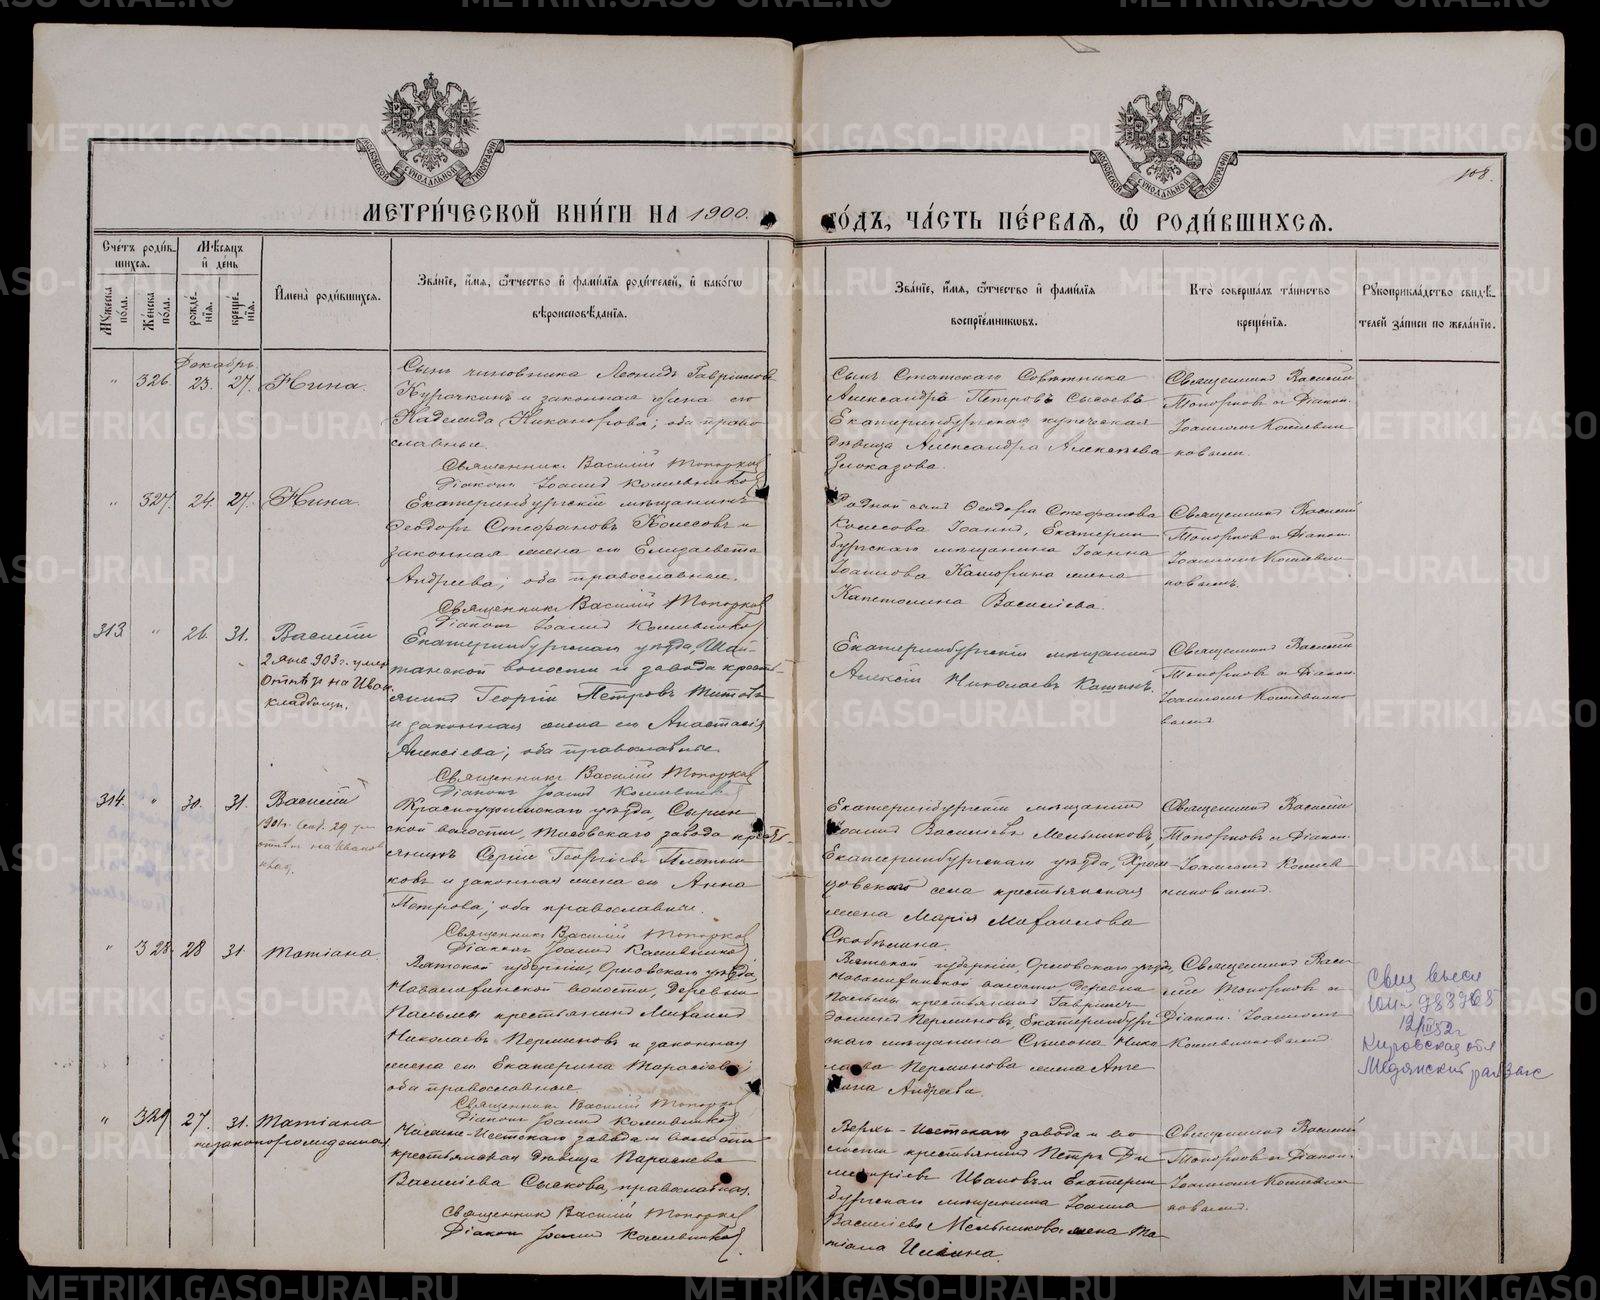 108.
МЕТРИ́ЧЕСКОЙ КНИ́ГИ НА 1900. ГО́ДЪ, ЧА́СТЬ ПЕ́РВАЯ, Ѽ РОДИ́ВШИХСЯ.
МОСКОВСКОЙ СѴНОДАЛЬНОЙ ТИПОГРАФІИ
МОСКОВСКОЙ СѴНОДАЛЬНОЙ ТИПОГРАФІИ
Сче́тъ роди́вшихся.
Мꙋ́жеска пола.
Же́нска пола.
Мѣ́сяцъ и҆ де́нь
рожде́нія.
креще́нія.
И҆мена̀ роди́вшихся.
Зва́ніе, и҆́мя, ѻ҆́тчество и҆ фами́лія роди́телей, и҆ како́гѡ
вѣроисповѣ́данія.
Зва́ніе, и҆́мя, ѻ҆́тчество и҆ фами́лія
воспріе́мникѡвъ.
Кто̀ соверша́лъ та́инство
креще́нія.
Рꙋкоприкла́дство свидѣ́-
телей за́писи по жела́нію.
Декабрь
" 326. 23. 27. Нина.
Сынъ чиновника Леонидъ Гавріиловъ
Курочкинъ и законная жена его
Надежда Никанорова; оба право
славные.
Священникъ Василій Топорковъ
Діаконъ Іоаннъ Кожевниковъ
Сынъ Статскаго Совѣтника
Александръ Петровъ Сысоевъ
Екатеринбургская купеческая
дѣвица Александра Алексѣева
Злоказова.
Священникъ Василій
Топорковъ и Діакон.
Іоанномъ Кожевни
ковымъ.
" 327. 24. 27. Нина.
Екатеринбургскій мѣщанинъ
Ѳеодоръ Стефановъ Колесовъ и
законная жена его Елизавета
Андреева; оба православные.
Священникъ Василій Топорковъ
Діаконъ Іоаннъ Кожевниковъ
Родной сынъ Ѳеодора Стефанова
Колесова Іоаннъ, Екатерин
бургскаго мѣщанина Іоанна
Іоаннова жена
Капитолина Василіева.
Священникъ Василій
Топорковъ и Діакон.
Іоанномъ Кожевни
ковымъ.
313. " 26. 31. Василій
2 янв 903 г. умер
Отпѣт на Иван.
кладбищѣ.
Екатеринбургскаго уѣзда, Шай-
танской волости и завода кресть-
янинъ Георгій Петровъ Титовъ
и законная жена его Анастасія
Алексіева; оба православные
Священникъ Василій Топорковъ
Діаконъ Іоаннъ Кожевниковъ
Екатеринбургскій мѣщанинъ
Алексій Николаевъ
Священникъ Василій
Топорковъ и Діакон.
Іоанномъ Кожевнико
вымъ
314. " 30. 31. Василій
1901 г. Сент. 29
отпѣт на Иванов
клад.
Красноуфимскаго уѣзда, Сырин
ской волости, Тисовскаго завода кресть-
янинъ Сергій Георгіевъ Плотни
ковъ и законная жена его Анна
Петрова; оба православные.
Священникъ Василій Топорковъ
Діаконъ Іоаннъ Кожевниковъ
Екатеринбургскій мѣщанинъ
Іоаннъ Василіевъ Мельниковъ,
Екатеринбургскаго уѣзда, Храм
цовскаго села крестьянская
жена Марія Михаилова
Скобѣлина.
Священникъ Василій
Топорковъ и Діакон.
Іоанномъ Кожев
никовымъ.
" 328. 28 31 Татіана
Вятской губерніи, Орловскаго уѣзда,
волости, деревни
Пальмы крестьянинъ Михаилъ
Николаевъ Перминовъ и законная
жена его Екатерина Тарасіева;
оба православные.
Священникъ Василій Топорковъ
Діаконъ Іоаннъ Кожевниковъ
Вятской губерніи, Орловскаго уѣзда,
волости, деревни
Пальмы крестьянинъ Гавріилъ
Перминовъ, Екатеринбург
скаго мѣщанина Симеона Нико
лаева Перминова жена
Андреева.
Священникъ Васи
лій Топорковъ и
Діакон. Іоанномъ
Кожевниковымъ.
12/III 52 г
Кировская обл
Медянский
" 329 27. 31. Татіана
незаконнорожденная
Нижне-Исетскаго завода и волости
крестьянская дѣвица Параскева
Василіева Сыскова, православная.
Священникъ Василій Топорковъ
Діаконъ Іоаннъ Кожевниковъ
Верхъ-Исетскаго завода и во
лости крестьянинъ Петръ Ди
митріевъ Ивановъ, Екатерин
бургскаго мѣщанина Іоанна
Василіева Мельникова жена Та
тіана Ильина.
Священникъ Василій
Топорковъ и Діакон.
Іоанномъ Кожевни
ковымъ.
METRIKI.GASO-URAL.RU